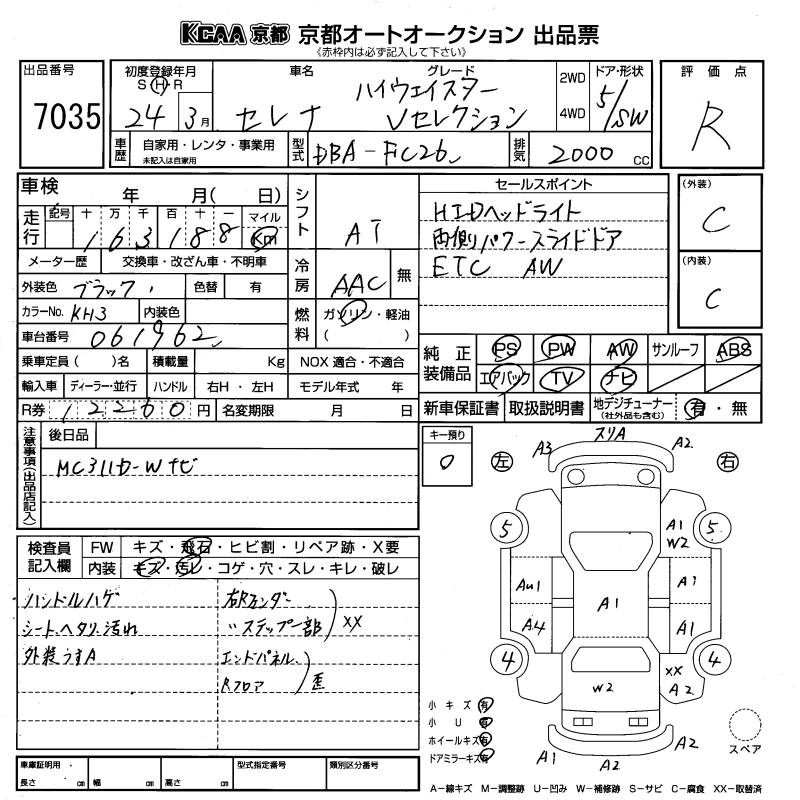 KCAA 京都 京都オートオークション 出品票
《赤枠内は必ず記入して下さい》
出品番号 7035
初度登録年月 S・H・R 24 3月
車名 セレナ
グレード ハイウェイスター Vセレクション
2WD 4WD
ドア・形状 5/SW
評価点 R
車歴 自家用・レンタ・事業用 未記入は自家用
型式 DBA-FC26
排気 2000 CC
車検 年 月( 日)
走行 記号 十 万 千 百 十 一 マイル Km
163188
シフト AT
セールスポイント
HIDヘッドライト
両側パワースライドドア
ETC AW
(外装) C
(内装) C
メーター歴 交換車・改ざん車・不明車
外装色 ブラック 色替 有
冷房 AAC 無
カラーNo. KH3 内装色
燃料 ガソリン・軽油 ( )
車台番号 061962
乗車定員 ( )名 積載量 Kg NOX 適合・不適合
輸入車 ディーラー・並行 ハンドル 右H・左H モデル年式 年
R券 12260円 名変期限 月 日
純正装備品 PS PW AW サンルーフ ABS
エアバック TV ナビ
新車保証書 取扱説明書 地デジチューナー (社外品も含む) 有・無
注意事項(出品店記入)
後日品
MC311D-Wナビ
キー預り 0
スリA
A3 A2
左 右
5 5
A1
W2
AU1 A1
A1
A4 A1
4 4
XX
A2
W2
A1 A2 A2
検査員記入欄 FW キズ・飛石・ヒビ割・リペア跡・X要
内装 キズ・汚レ・コゲ・穴・スレ・キレ・破レ
ハンドルハゲ
シート、ヘタリ、汚れ
外装うすA
右Rフェンダー
〃ステップ一部 XX
エンドパネル
Rフロア 歪
小キズ 有
小U 有
ホイールキズ 有
ドアミラーキズ 有
スペア
車庫証明用・長さ cm 幅 cm 高さ cm 型式指定番号 類別区分番号
A-線キズ M-調整跡 U-凹み W-補修跡 S-サビ C-腐食 XX-取替済